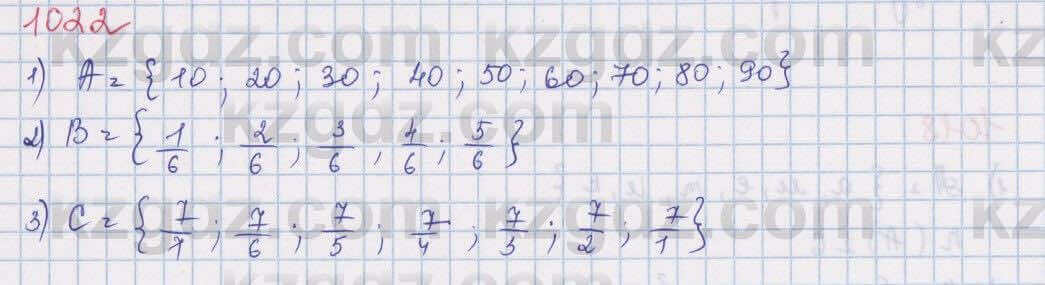 1022
1) A = {10; 20; 30; 40; 50; 60; 70; 80; 90}
2) B = {1/6; 2/6; 3/6; 4/6; 5/6}
3) C = {7/7; 7/6; 7/5; 7/4; 7/3; 7/2; 7/1}
kzgdz.com kzgdz.com
kzgdz.com
kzgdz.com kzgdz.com